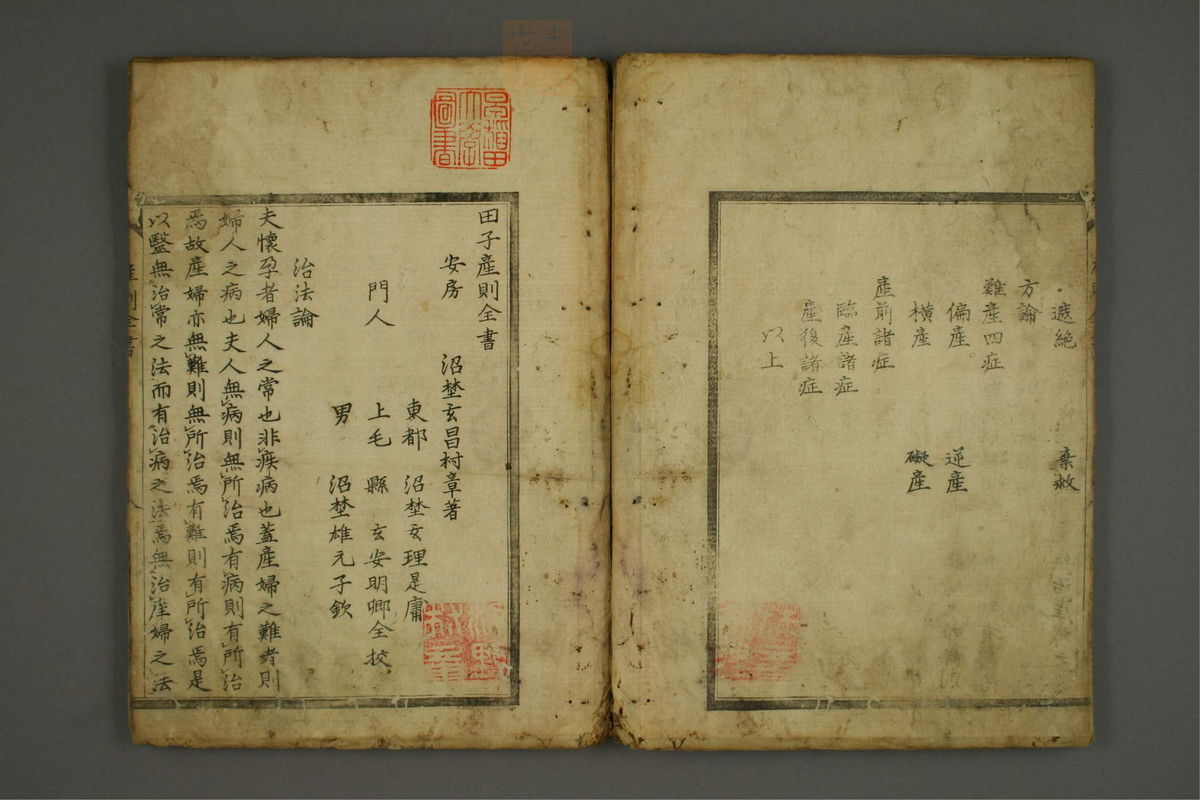 遯絶　棄救
方論
難産四症
偏産。　逆産
横産　礙産
産前諸症
臨産諸症
産後諸症
以上
早稲田大学図書
田子産則全書
安房　沼埜玄昌村章著
東都　沼埜玄理是庸
門人　上毛　縣　玄安明卿仝挍
男　沼埜雄元子欽
治法論
夫懐孕者婦人之常也非疾病也蓋産婦之難者則
婦人之病也夫人無病則無所治焉有病則有所治
焉故産婦亦無難則無所治焉有難則有所治焉是
以毉無治常之法而有治病之法焉無治産婦之法
産則全書